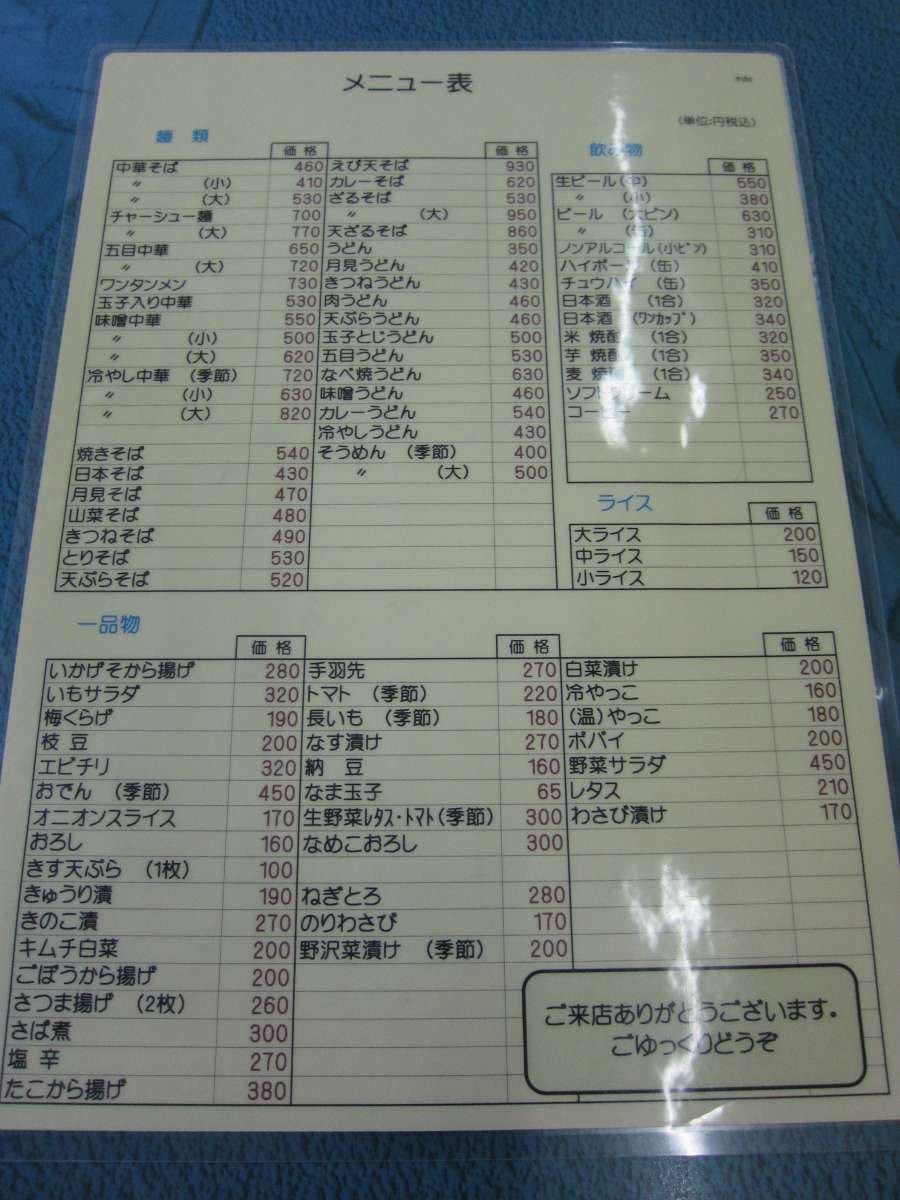 メニュー表
(単位:円税込)
麺 類
価 格
中華そば 460
〃 (小) 410
〃 (大) 530
チャーシュー麺 700
〃 (大) 770
五目中華 650
〃 (大) 720
ワンタンメン 730
玉子入り中華 530
味噌中華 550
〃 (小) 500
〃 (大) 620
冷やし中華 (季節) 720
〃 (小) 630
〃 (大) 820
焼きそば 540
日本そば 430
月見そば 470
山菜そば 480
きつねそば 490
とりそば 530
天ぷらそば 520
価 格
えび天そば 930
カレーそば 620
ざるそば 530
〃 (大) 950
天ざるそば 860
うどん 350
月見うどん 420
きつねうどん 430
肉うどん 460
天ぷらうどん 460
玉子とじうどん 500
五目うどん 530
なべ焼うどん 630
味噌うどん 460
カレーうどん 540
冷やしうどん 430
そうめん (季節) 400
〃 (大) 500
飲み物
価 格
生ビール(中) 550
〃 (小) 380
ビール (大ビン) 630
〃 (缶) 310
ノンアルコール(小ビン) 310
ハイボール (缶) 410
チュウハイ (缶) 350
日本酒 (1合) 320
日本酒 (ワンカップ) 340
米 焼酎 (1合) 320
芋 焼酎 (1合) 350
麦 焼酎 (1合) 340
ソフトクリーム 250
コーヒー 270
ライス
価 格
大ライス 200
中ライス 150
小ライス 120
一品物
価 格
いかげそから揚げ 280
いもサラダ 320
梅くらげ 190
枝 豆 200
エビチリ 320
おでん (季節) 450
オニオンスライス 170
おろし 160
きす天ぷら (1枚) 100
きゅうり漬 190
きのこ漬 270
キムチ白菜 200
ごぼうから揚げ 200
さつま揚げ (2枚) 260
さば煮 300
塩 辛 270
たこから揚げ 380
価 格
手羽先 270
トマト (季節) 220
長いも (季節) 180
なす漬け 270
納 豆 160
なま玉子 65
生野菜レタス・トマト(季節) 300
なめこおろし 300
ねぎとろ 280
のりわさび 170
野沢菜漬け (季節) 200
価 格
白菜漬け 200
冷やっこ 160
(温)やっこ 180
ポパイ 200
野菜サラダ 450
レタス 210
わさび漬け 170
ご来店ありがとうございます。
ごゆっくりどうぞ